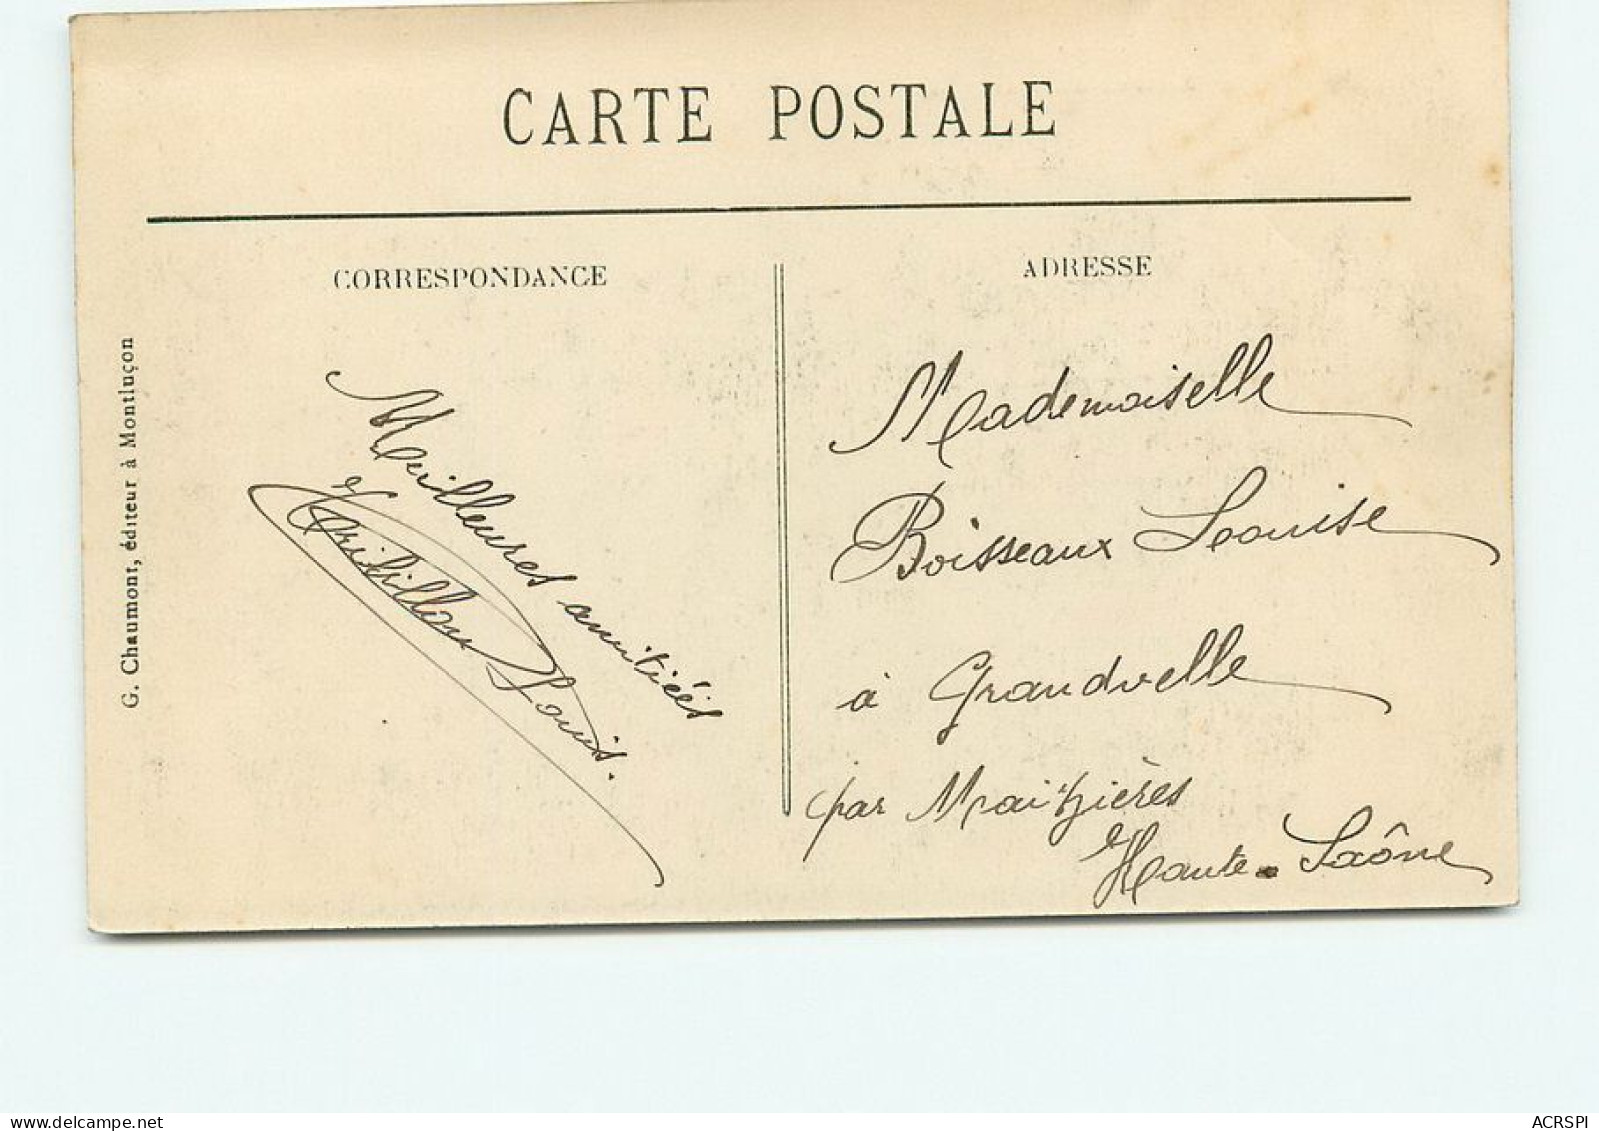 CARTE POSTALE
CORRESPONDANCE
ADRESSE
G. Chaumont, éditeur à Montluçon
Meilleures amitiées
Louis.
Mademoiselle
Boisseaux Louise
à Grandvelle
par Maizières
Haute-Saône
delcampe.net
ACRSPI